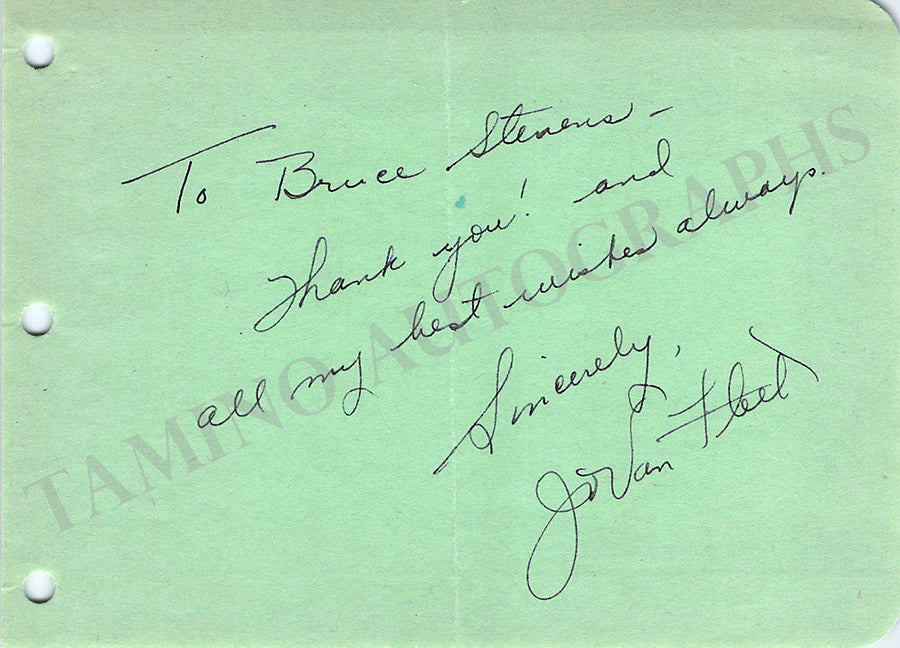 To Bruce Stevens -
Thank you! and
all my best wishes always.
Sincerely,
Jo Van Fleet
TAMINO AUTOGRAPHS